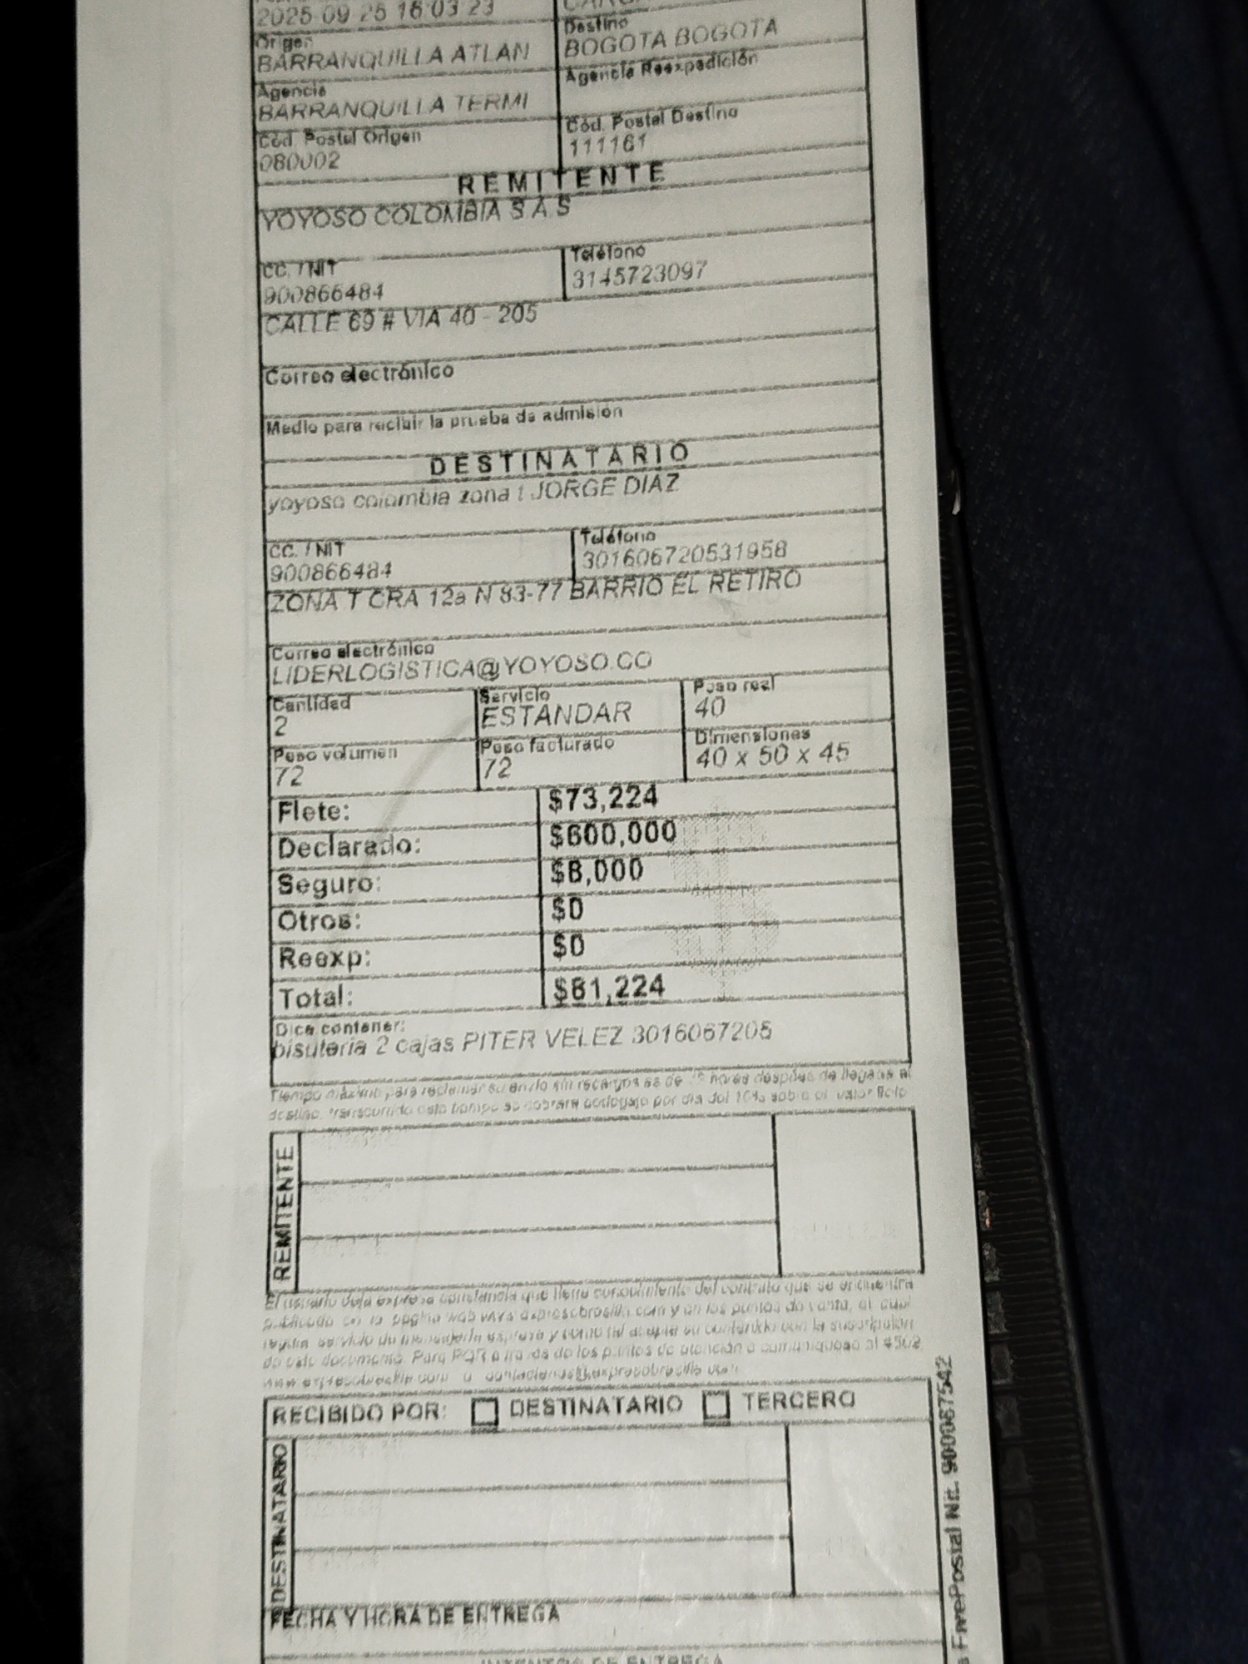 2025 09 25 16:03 23
Origen
BARRANQUILLA ATLAN
Destino
BOGOTA BOGOTA
Agencia
BARRANQUILLA TERMI
Agencia Reexpedición
Cód. Postal Origen
080002
Cód. Postal Destino
111161
REMITENTE
YOYOSO COLOMBIA S A S
CC. / NIT
900866484
Teléfono
3145723097
CALLE 69 # VIA 40 - 205
Correo electrónico
Medio para recibir la prueba de admisión
DESTINATARIO
yoyoso colombia zona t JORGE DIAZ
CC. / NIT
900866484
Teléfono
301606720531958
ZONA T CRA 12a N 83-77 BARRIO EL RETIRO
Correo electrónico
LIDERLOGISTICA@YOYOSO.CO
Cantidad
2
Servicio
ESTANDAR
Peso real
40
Peso volumen
72
Peso facturado
72
Dimensiones
40 x 50 x 45
Flete: $73,224
Declarado: $600,000
Seguro: $8,000
Otros: $0
Reexp: $0
Total: $81,224
Dice contener:
bisuteria 2 cajas PITER VELEZ 3016067205
Tiempo máximo para reclamar su envío sin recargos es de horas después de llegada al
destino, transcurrido este tiempo se cobrará bodegaje por día del 10% sobre el valor flete
REMITENTE
El usuario deja expresa constancia que tiene conocimiento del contrato que se encuentra
publicado en la página web www.expresobrasilia.com y en los puntos de venta, el cual
regula servicio de mensajería expresa y como tal acepta su contenido con la suscripción
de este documento. Para PQR a través de los puntos de atención o comuníquese al
www.expresobrasilia.com o
RECIBIDO POR: DESTINATARIO TERCERO
DESTINATARIO
FECHA Y HORA DE ENTREGA
INTENTOS DE ENTREGA
FivePostal Nit. 900087542